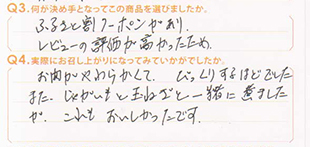 Q3.何が決め手となってこの商品を選びましたか。
ふるさと割クーポンがあり、
レビューの評価が高かったため。
Q4.実際にお召し上がりになってみていかがでしたか。
お肉がやわらかくて、びっくりするほどでした
また、じゃがいもと玉ねぎと一緒に煮ました
が、これも おいしかったです。